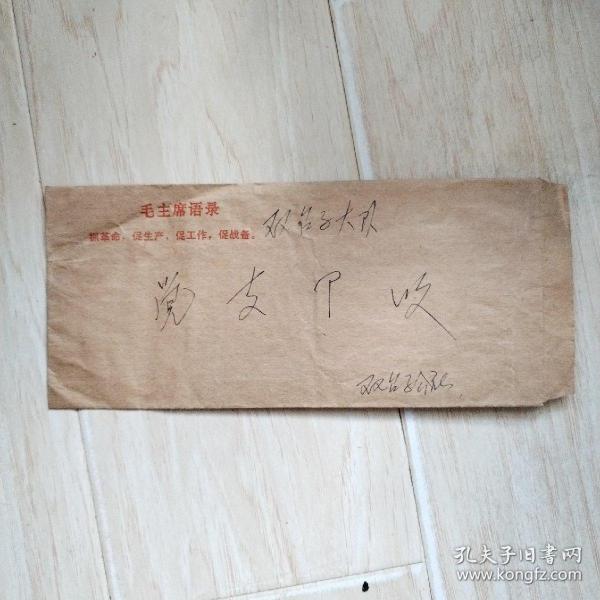 毛主席语录
抓革命，促生产，促工作，促战备。
双台子大队
党支卩收
双台子公社
孔夫子旧書网
www.kongfz.com